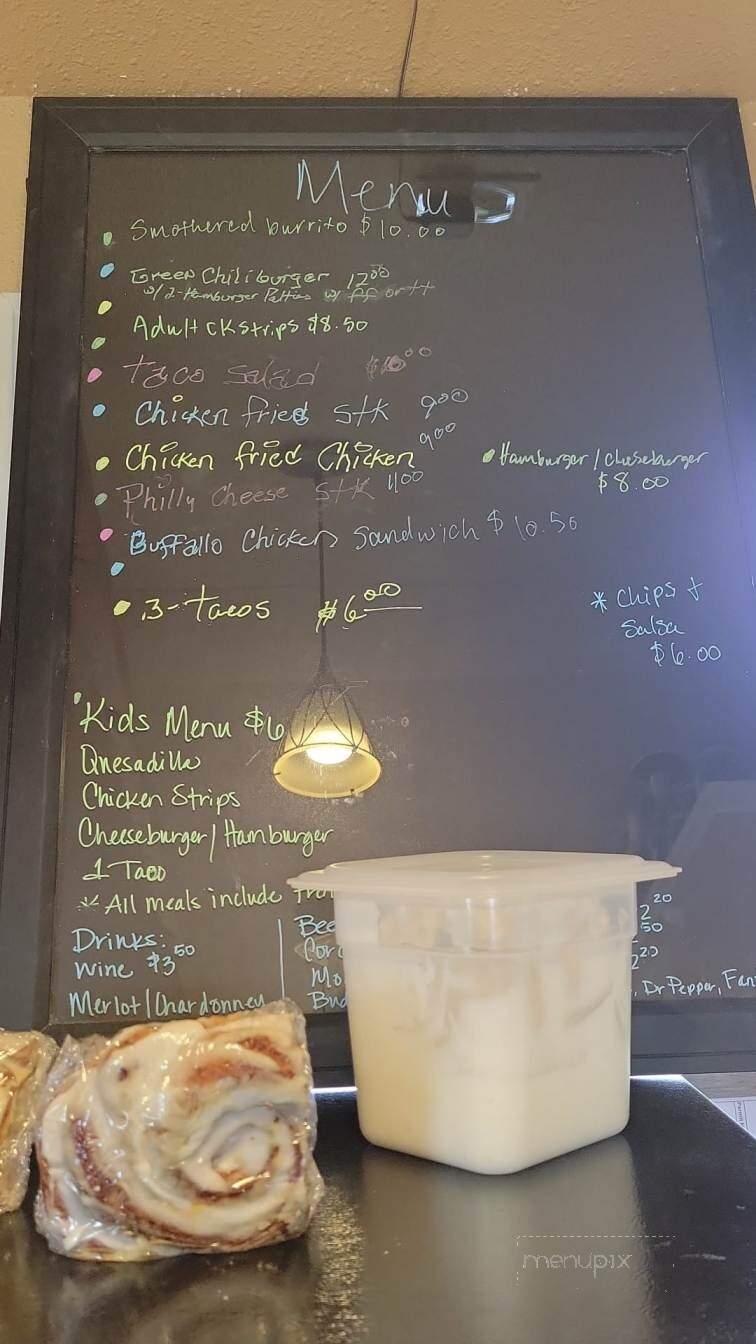 Menu
Smothered burrito $10.00
Green Chiliburger 12⁰⁰
w/ 2-Hamburger Patties w/ ff or tt
Adult CK strips $8.50
Taco Salad
Chicken fried Stk 9⁰⁰
Chicken fried Chicken 9⁰⁰
• Hamburger / cheeseburger
$8.00
Philly cheese Stk 11⁰⁰
Buffalo Chicken Sandwich $10.50
3-tacos $6⁰⁰
* Chips +
Salsa
$6.00
Kids Menu $6
Quesadilla
Chicken Strips
Cheeseburger / Hamburger
1 Taco
* All meals include
Drinks:
Wine $3⁵⁰
Merlot / Chardonney
Bee
Cor
Mo
Bud
2²⁰
50
2²⁰
, Dr Pepper, Fan
menupix